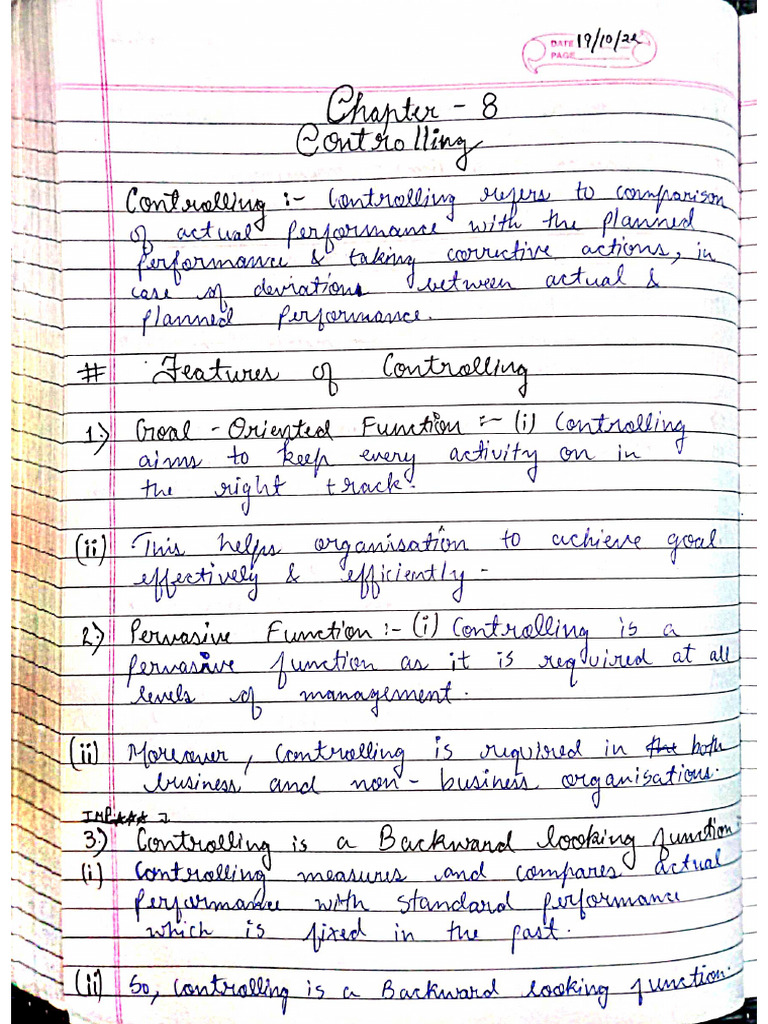 DATE 19/10/22
PAGE
Chapter - 8
Controlling
Controlling :- Controlling refers to comparison
of actual performance with the planned
performance & taking corrective actions, in
case of deviations between actual &
planned performance.
# Features of Controlling
1.) Goal - Oriented Function :- (i) Controlling
aims to keep every activity on in
the right track.
(ii) This helps organisation to achieve goal
effectively & efficiently -
2.) Pervasive Function :- (i) Controlling is a
pervasive function as it is required at all
levels of management.
(ii) Moreover, controlling is required in the both
business and non - business organisations.
IMP ★★★ :
3.) Controlling is a Backward looking function :
(i) Controlling measures and compares actual
performance with standard performance
which is fixed in the past.
(ii) So, controlling is a Backward looking function.